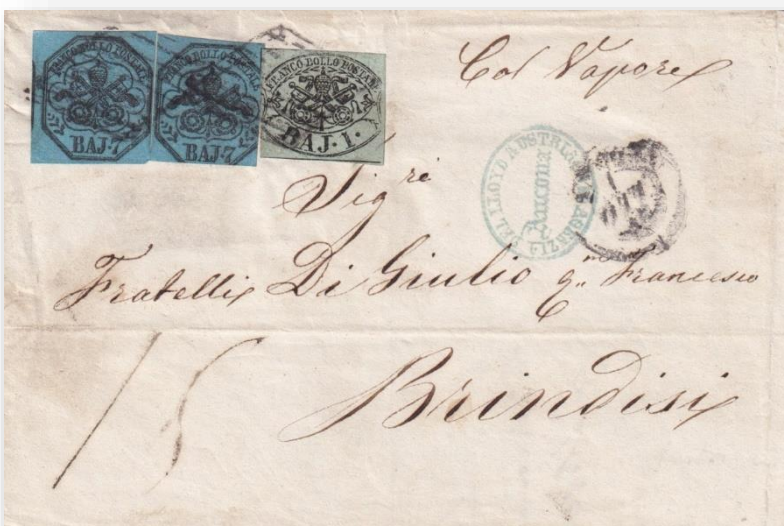 FRANCO BOLLO POSTALE
BAJ·7
FRANCO BOLLO POSTALE
BAJ·7
FRANCO BOLLO POSTALE
BAJ·1·
Col Vapore
AGENZIA DEL LLOYD AUSTRIACO
Ancona
Sigri
Fratelli Di Giulio qm Francesco
15
Brindisi